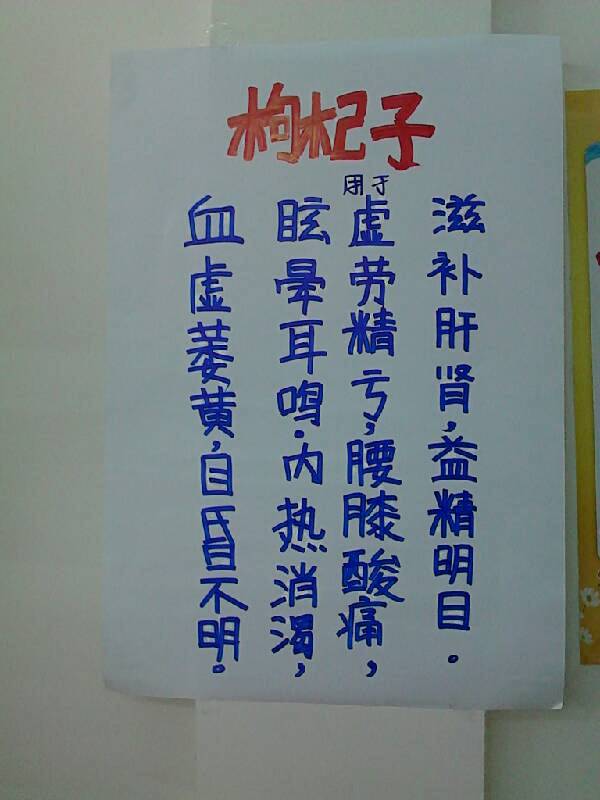 枸杞子
滋补肝肾,益精明目.
用于
虚劳精亏,腰膝酸痛,
眩晕耳鸣.内热消渴,
血虚萎黄,目昏不明.